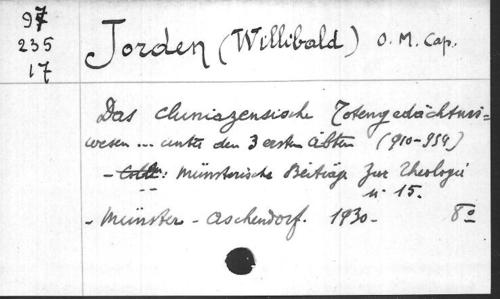 97
235
17
Jorden (Willibald) O. M. Cap.
Das cluniazensische Totengedächtnis=
wesen ... unter den 3 ersten Äbten (910-954)
- Coll.: Münsterische Beiträge zur Theologie
n 15.
- Münster - Aschendorf. 1930 - 8º